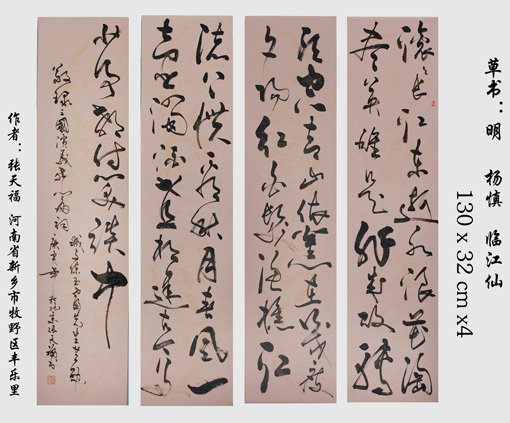 草书：明 杨慎 临江仙
130 x 32 cm x4
滚滚长江东逝水浪花淘
尽英雄是非成败转
头空青山依旧在几度
夕阳红白发渔樵江
渚上惯看秋月春风一
壶浊酒喜相逢古今多
少事都付笑谈中
敬录三国演义开篇词
作者：张天福 河南省新乡市牧野区丰乐里